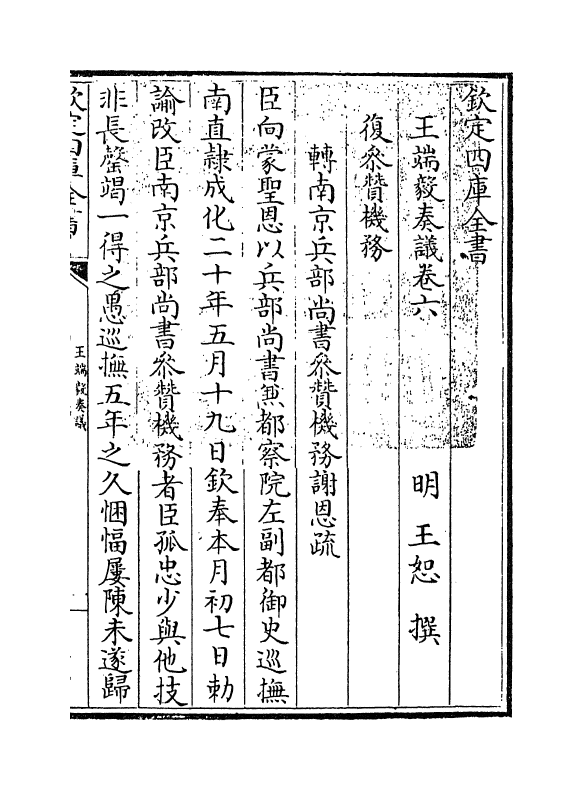 欽定四庫全書
王端毅奏議卷六
明 王恕 撰
復參贊機務
轉南京兵部尚書參贊機務謝恩疏
臣向蒙聖恩以兵部尚書兼都察院左副都御史巡撫
南直隸成化二十年五月十九日欽奉本月初七日勅
諭改臣南京兵部尚書參贊機務者臣孤忠少與他技
非長罄竭一得之愚巡撫五年之久悃愊屢陳未遂歸
欽定四庫全書
王端毅奏議
一